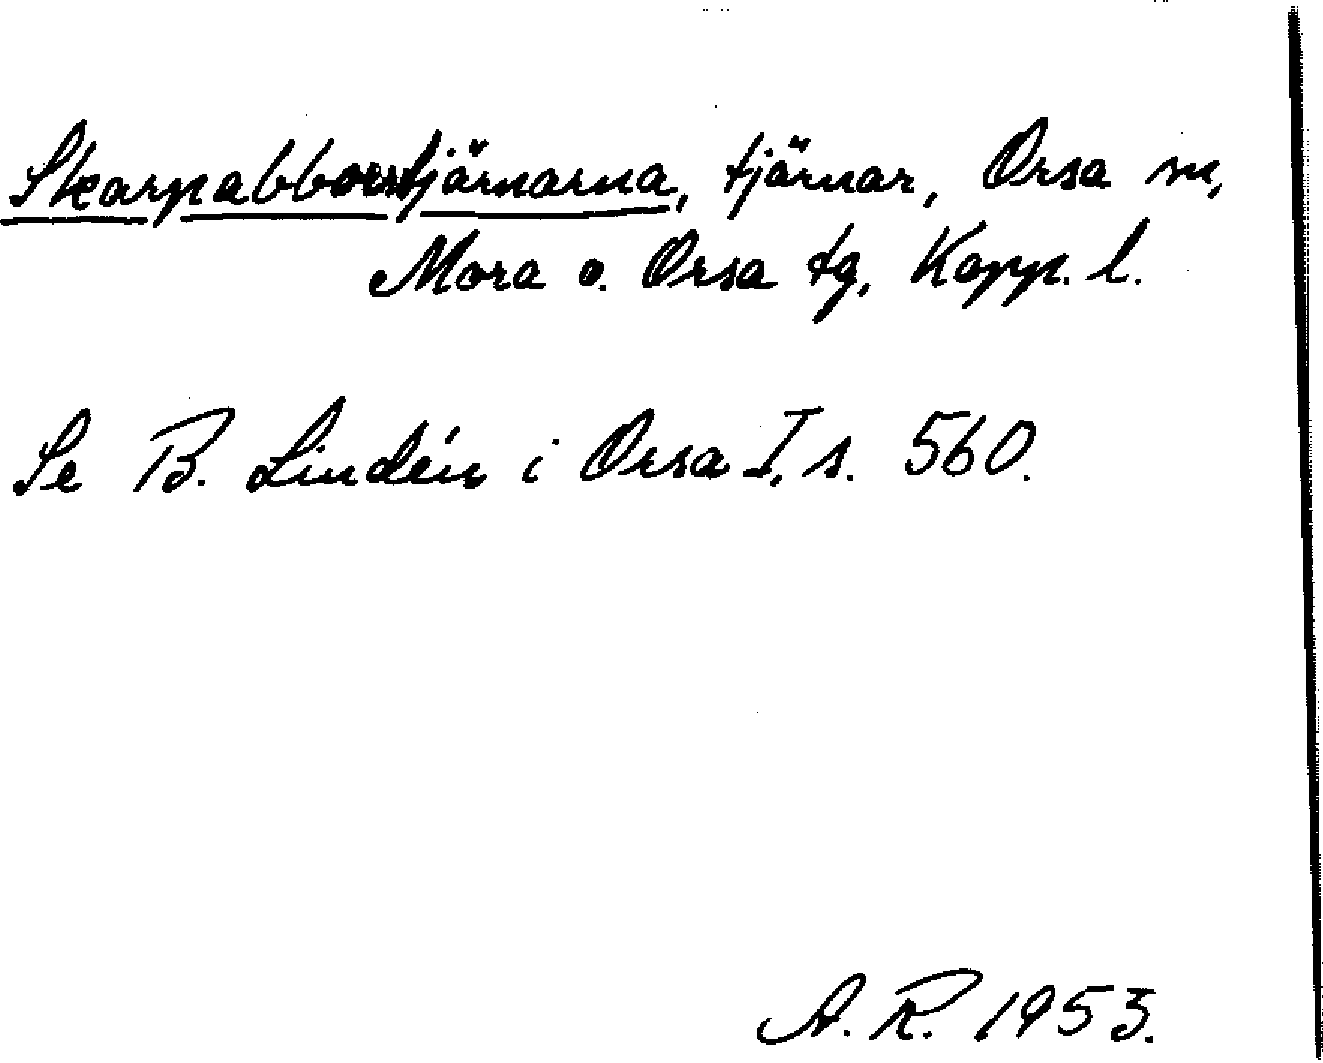 Skarpabborrtjärnarna, tjärnar, Orsa sn,
Mora o. Orsa tg, Kopp. l.
Se B. Lindén i Orsa I, s. 560.
A. R. 1953.